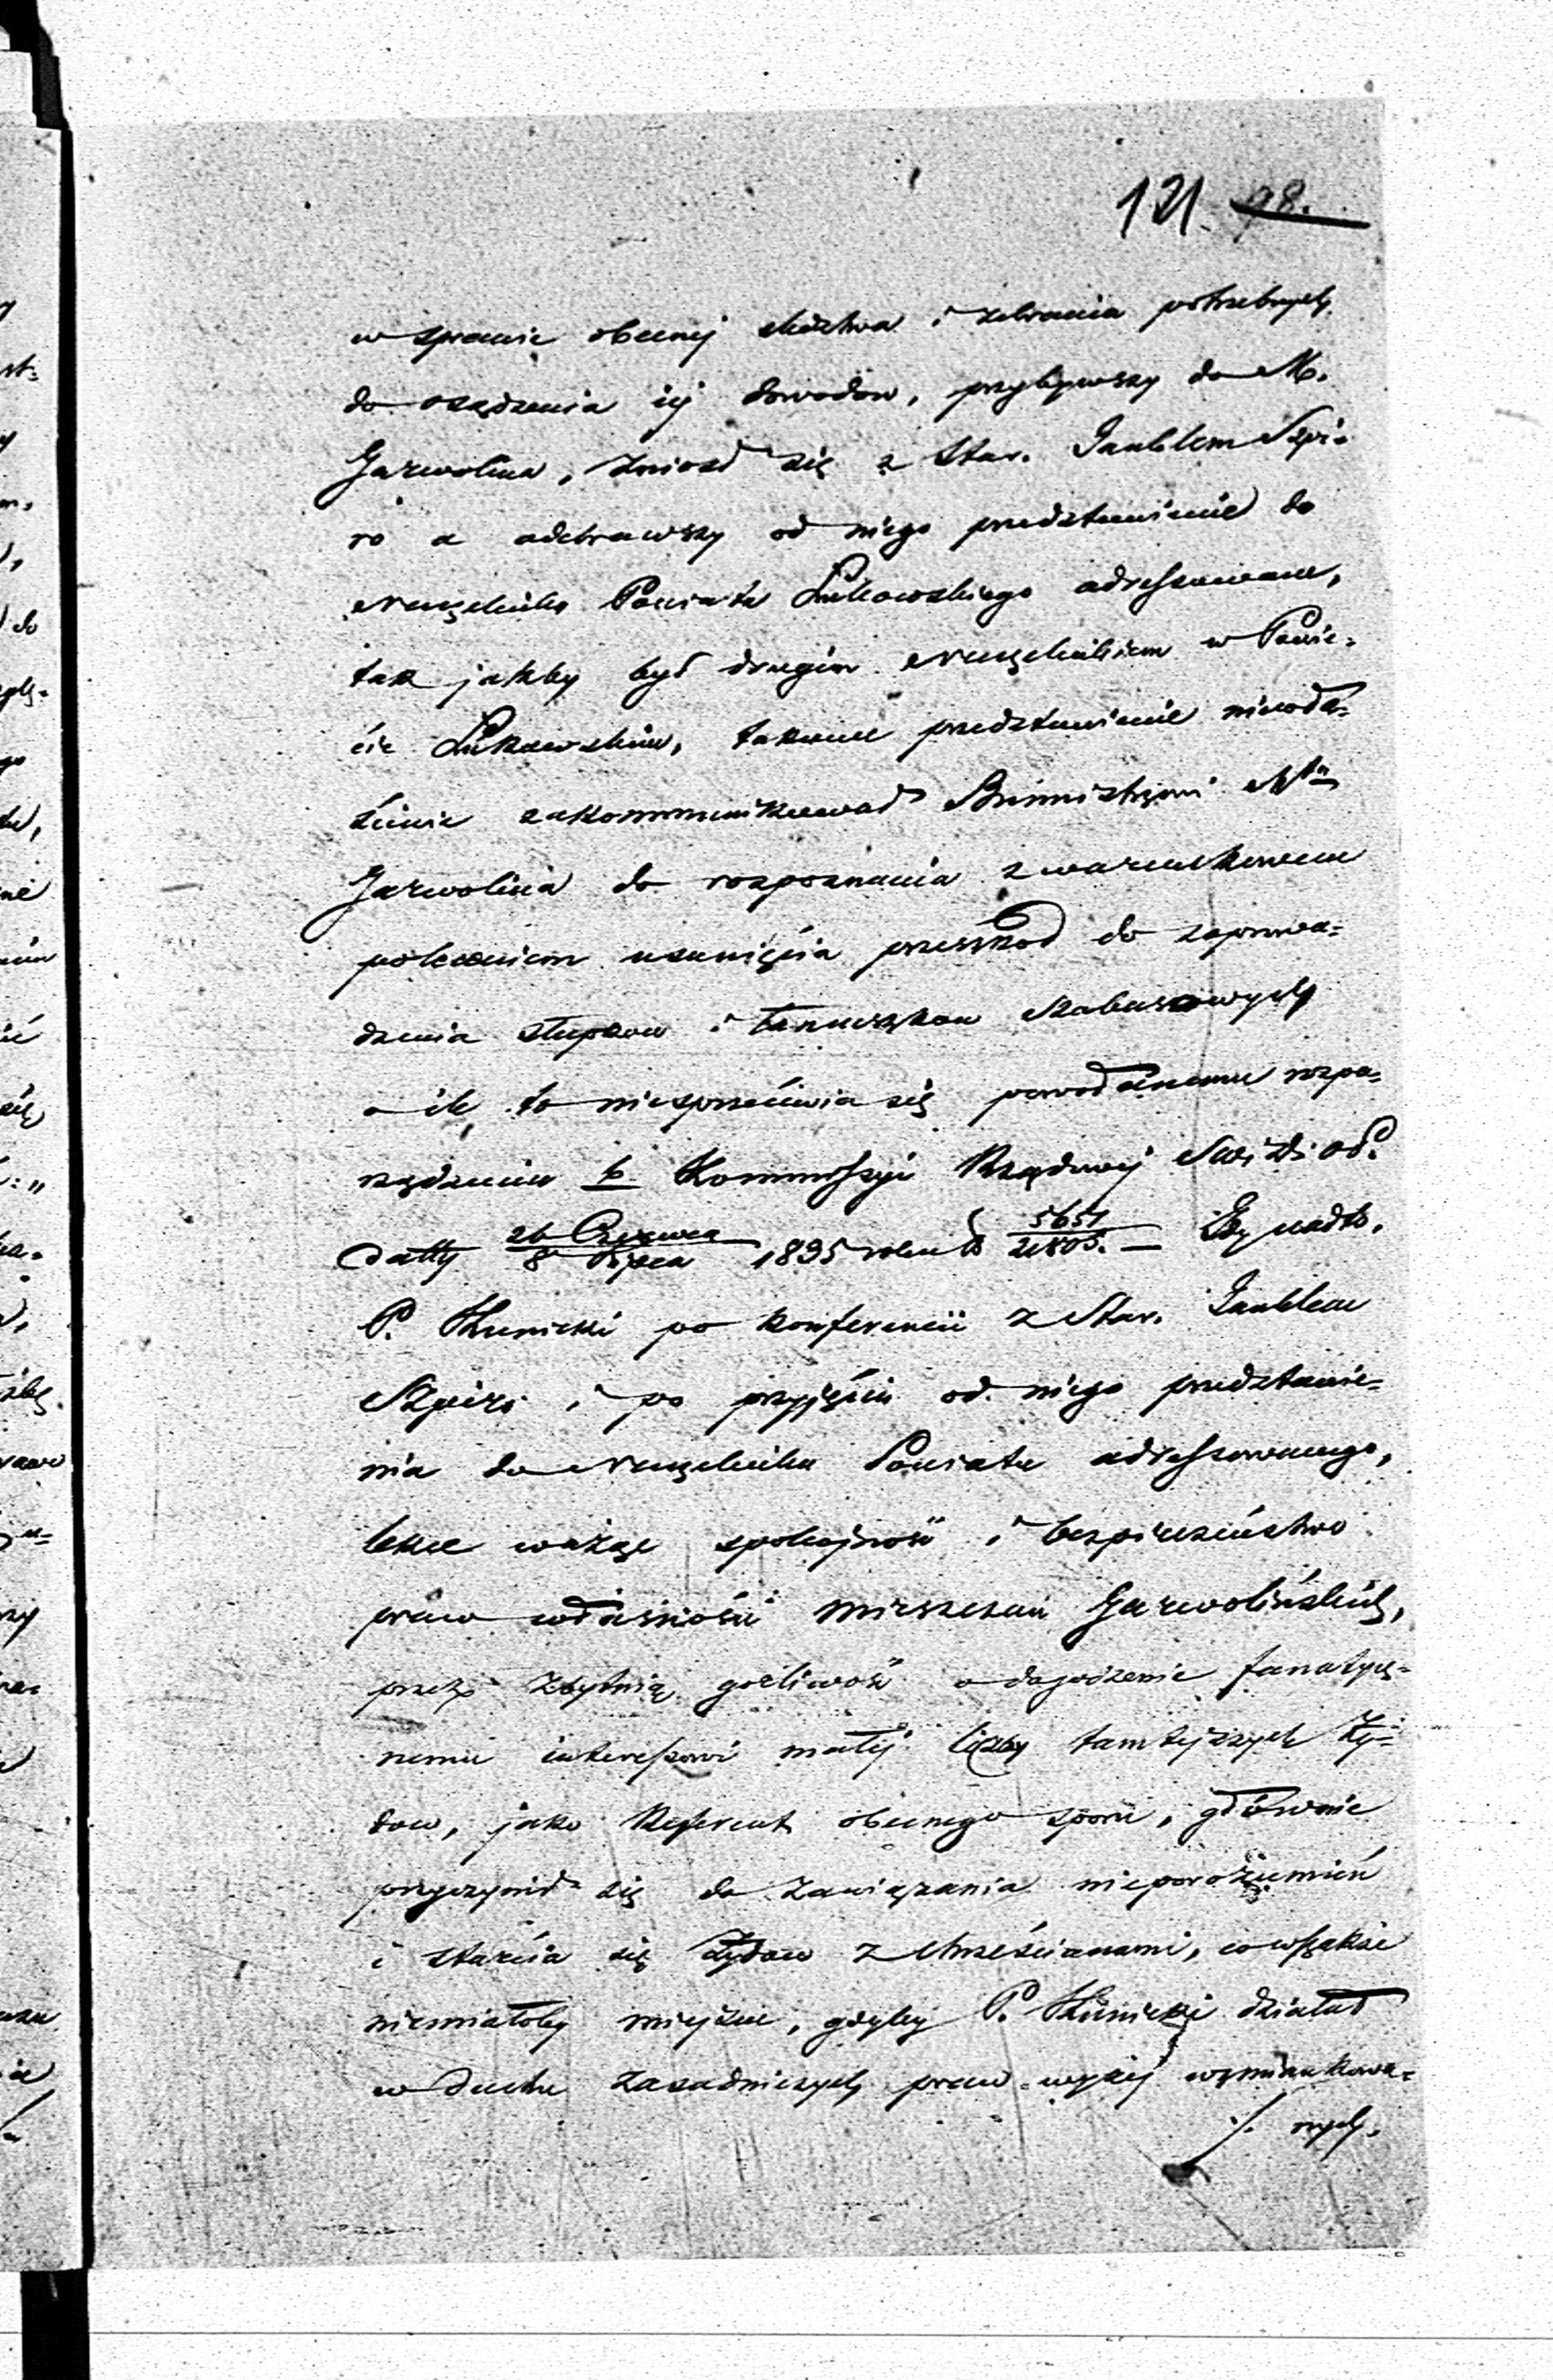 121. 98.
w sprawie obecnej śledztwa i zebrania potrzebnych
do osądzenia jej dowodów, przybywszy do M.
Garwolina, zniosł się z Star. Janklem Szpi-
ro a odebrawszy od niego przedstawienie do
Naczelnika Powiatu Łukowskiego adressowane,
tak jakby był drugim Naczelnikiem w Powie-
cie Łukowskim, takowe przedstawienie niewła-
ściwie zakommunikował Burmistrzowi Mta
Garwolina do rozpoznania z warunkowem
poleceniem usunięcia przeszkód do zaprowa-
dzenia słupkow i łancuszkow szabasowych
o ile to niesprzeciwia się powołanemu rozpo-
rządzeniu b Kommissyi Rządowej
datty 26 Czerwca / 8 Lipca 1835 roku N 5651 / 21805. — Ze nadto
P. Kunicki po konferencii z Star. Janklem
Szpiro i po przyjęciu od niego przedstawie-
nia do Naczelnika Powiatu adressowanego,
lekce ważąc spokojność i bezpieczeństwo
praw własności mieszczan Garwolińskich,
przez zbytnią gorliwość o dogodzenie fanatycz-
nemu interessowi małej liczby tamtejszych Ży-
dow, jako Referent obecnego sporu, głównie
przyczynił się do zawiązania nieporozumień
i starcia się Żydow z Chrześcianami, co wszakże
niemiałoby miejsca, gdyby P. Kunicki działał
w duchu zasadniczych praw wyżej wzmiankowa-
./. nych.